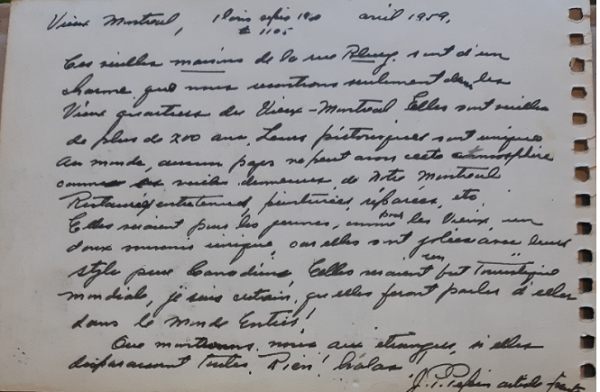 Vieux Montreal, avril 1959,
# 1105
Ces vieilles maisons de la rue Bleury sont d'un
charme que nous rencontrons seulement dans les
Vieux quartiers du Vieux-Montreal Elles sont vieilles
de plus de 200 ans. Leurs pistoresques sont unique
au monde, aucun pays ne peut avoir cette atmosphère
comme vieilles demeures de Notre Montreal
Restaurées entretenues, peinturées, réparées, etc.
Elles seraient pour les jeunes, comme pour les Vieux, un
doux unique, car elles sont jolies avec leurs
style pure Canadien Elles seraient un but Touristique
mondiale, je suis certain, que elles feront parler d'elles
dans le Monde Entier!
Que montrerons nous aux étrangers, si elles
disparaissent toutes. Rien! hélas
J. P. Pepin artiste